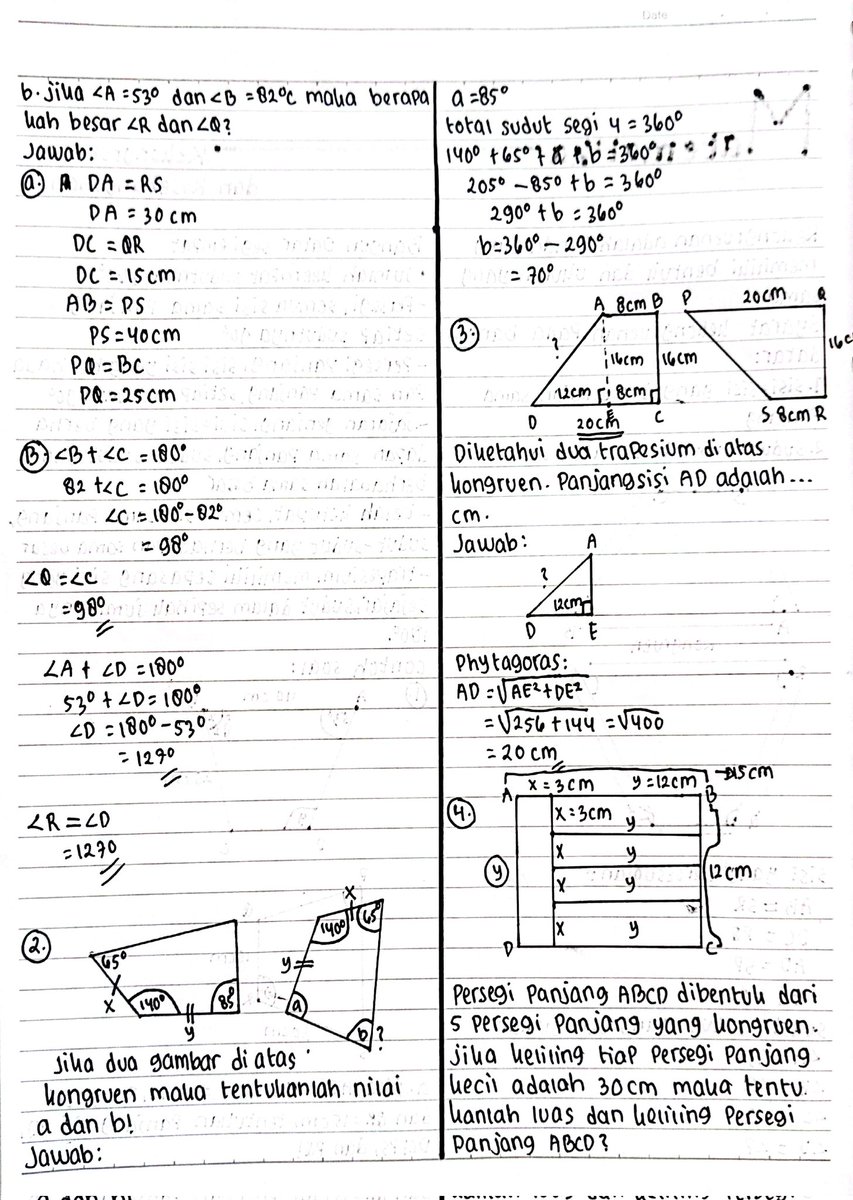 Date
b. jika ∠A = 53° dan ∠B = 82°C maka berapa
kah besar ∠R dan ∠Q?
Jawab:
a. DA = RS
DA = 30 cm
DC = QR
DC = 15 cm
AB = PS
PS = 40 cm
PQ = BC
PQ = 25 cm
B. ∠B + ∠C = 180°
82 + ∠C = 180°
∠C = 180° - 82°
= 98°
∠Q = ∠C
= 98°
∠A + ∠D = 180°
53° + ∠D = 180°
∠D = 180° - 53°
= 127°
∠R = ∠D
= 127°
2.
65° x 140° y 85°
x 140° 65° y a b ?
Jika dua gambar di atas
kongruen maka tentukanlah nilai
a dan b!
Jawab:
a = 85°
total sudut segi 4 = 360°
140° + 65° + a + b = 360°
205° - 85° + b = 360°
290° + b = 360°
b = 360° - 290°
= 70°
3.
A 8cm B
? 16cm 16cm
12cm 8cm
D 20cm C
P 20cm Q
16c
S 8cm R
Diketahui dua trapesium di atas
kongruen. Panjang sisi AD adalah ...
cm.
Jawab:
A
? 12cm
D E
Phytagoras:
AD = √AE² + DE²
= √256 + 144 = √400
= 20 cm
15 cm
A x = 3cm y = 12cm B
4.
x = 3cm y
x y
y 12cm
x y
x y
D C
Persegi Panjang ABCD dibentuk dari
5 Persegi Panjang yang kongruen.
jika keliling tiap Persegi Panjang
kecil adalah 30 cm maka tentu
kanlah luas dan keliling Persegi
Panjang ABCD?